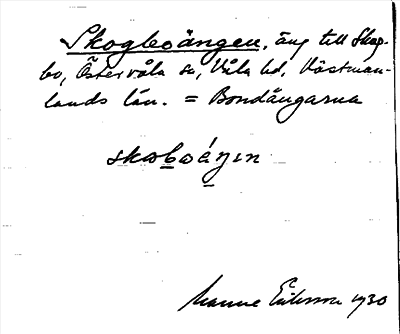 Skogboängen, äng till Skog-
bo, Östervåla sn, Våla hd, Västman-
lands län. = Bondängarna
skωbωáŋεn
Manne Eriksson 1930